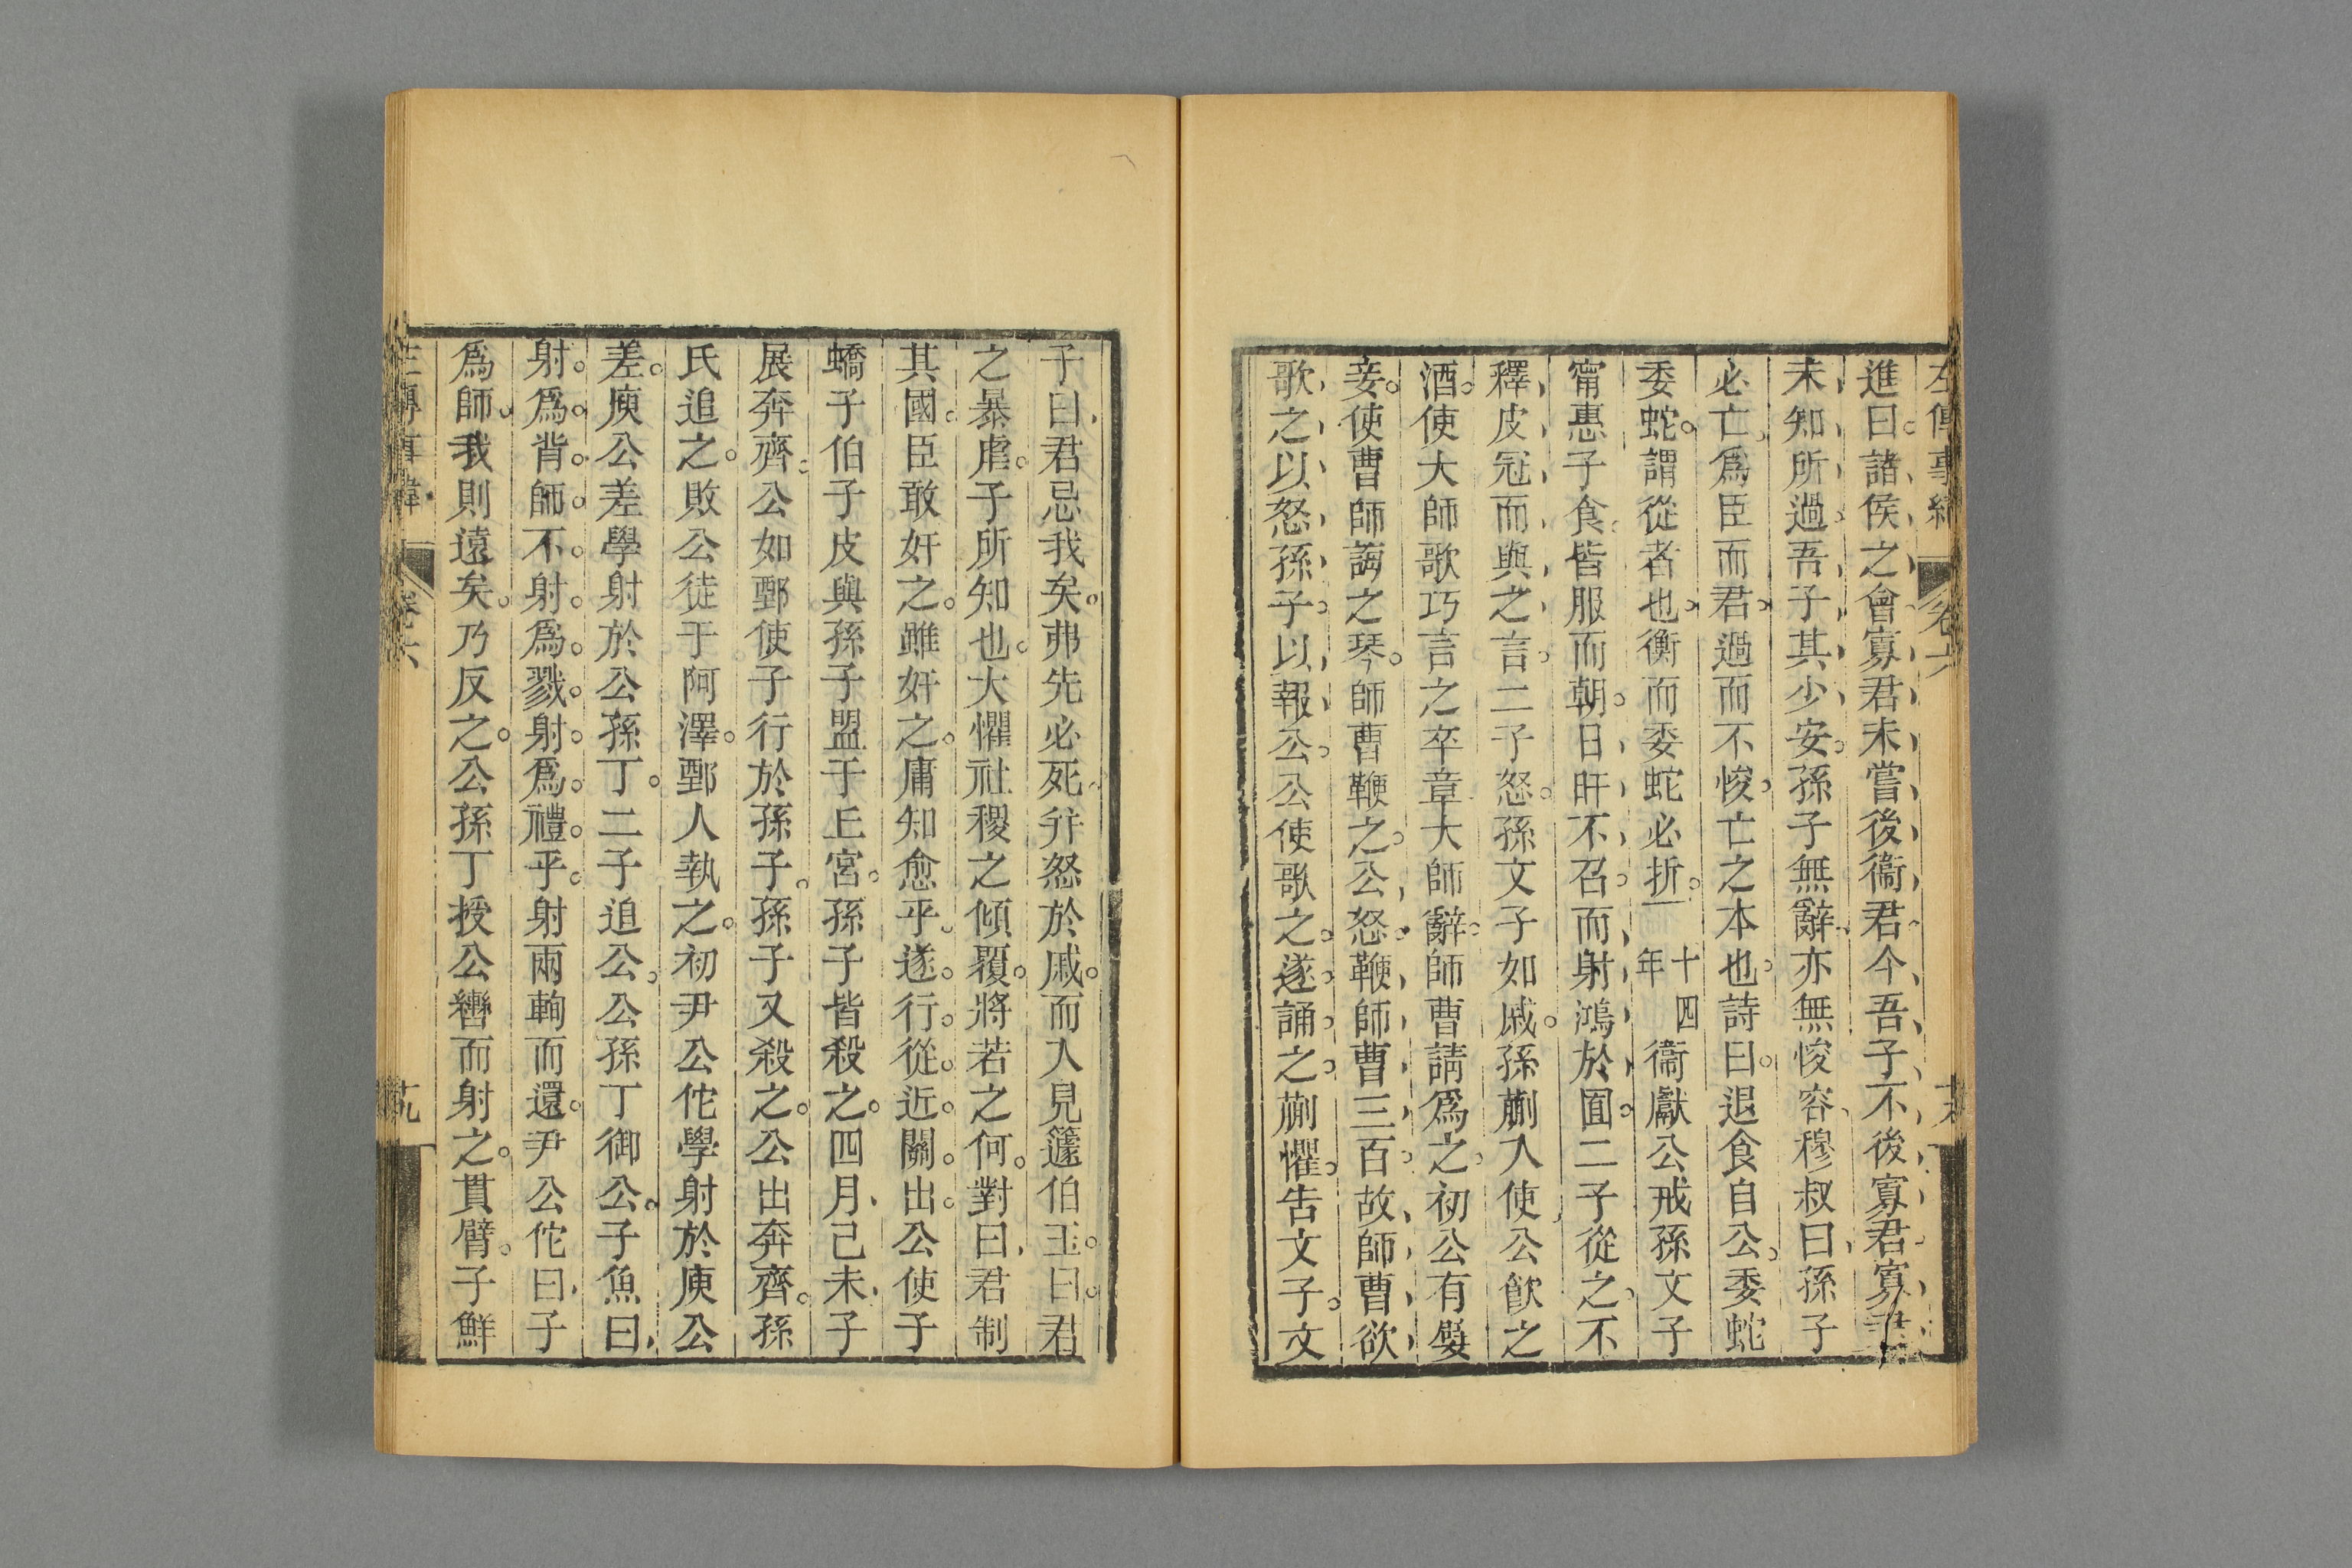 左傳事緯
卷六
進曰。諸侯之會、寡君未嘗後衞君、今吾子不後寡君、寡君
未知所過。吾子其少安。孫子無辭、亦無悛容、穆叔曰、孫子
必亡。爲臣而君、過而不悛、亡之本也。詩曰。退食自公。委蛇
委蛇。謂從者也、衡而委蛇必折。十四年衞獻公戒孫文子
甯惠子食。皆服而朝。日旰不召。而射鴻於囿。二子從之、不
釋皮冠而與之言。二子怒。孫文子如戚。孫蒯入使、公飮之
酒。使大師歌巧言之卒章大師辭。師曹請爲之、初公有嬖
妾。使曹師誨之琴。師曹鞭之。公怒。鞭師曹三百。故師曹欲
歌之、以怒孫子。以報公。公使歌之。遂誦之。蒯懼。告文子。文
子曰、君忌我矣。弗先必死。并怒於戚。而入見籧伯玉。曰。君
之暴虐。子所知也。大懼社稷之傾覆。將若之何。對曰、君制
其國。臣敢奸之。雖奸之。庸知愈乎。遂行。從近關出。公使子
蟜子伯子皮與孫子盟于丘宮。孫子皆殺之。四月、己未、子
展奔齊。公如鄄使子行於孫子。孫子又殺之。公出奔齊。孫
氏追之。敗公徒于阿澤。鄄人執之。初尹公佗學射於庾公
差。庾公差學射於公孫丁。二子追公。公孫丁御公。子魚曰、
射。爲。背。師。不。射。爲。戮。射。爲。禮。乎。射兩軥而還。尹公佗曰、子
爲師、我則遠矣。乃反之。公孫丁授公轡而射之。貫臂。子鮮
左傳事緯
卷六